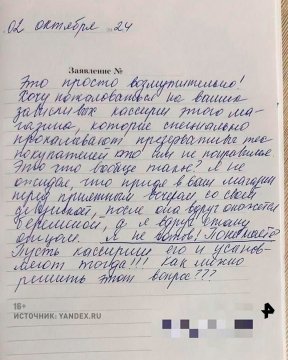 02 октября 24
Заявление №
Это просто возмутительно!
Хочу пожаловаться на ваших
завистливых кассирш этого ма-
газина, которые специально
прокалывают презервативы тем
покупателей кто им не понравился.
Это что вообще такое? Я не
ожидал, что придя в ваш магазин
перед приятным вечером, со своей
девушкой, после она вдруг окажется
беременой, а я вдруг стану
отцом. Я не готов!
Пусть кассирши его и усынов-
ляют тогда!!! Как можно
решить этот вопрос???
16+
ИСТОЧНИК: YANDEX.RU